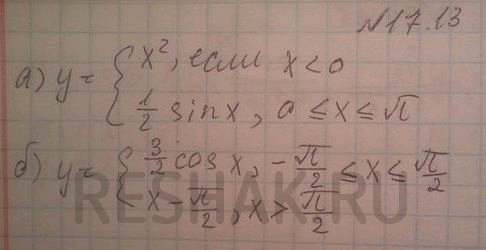 №17.13
а) y = { x², если x < 0
½ sin x, 0 ≤ x ≤ π
б) y = { 3/2 cos x, -π/2 ≤ x ≤ π/2
x - π/2, x > π/2
RESHAK.RU